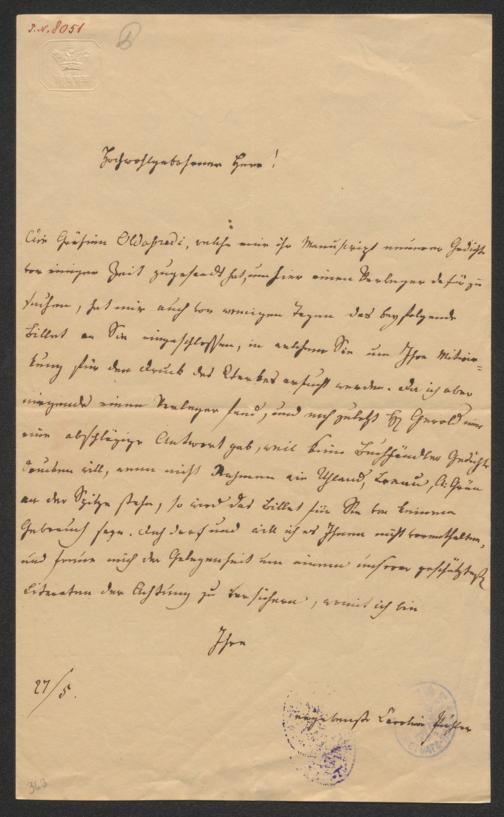 I.N. 8051
Hochwohlgeborner Herr!
Die Gräfinn Oldofredi, welche mir ihr Manuscript neuerer Gedichte
vor einiger Zeit zugesandt hat, um hier einen Verleger dafür zu
suchen, hat mir auch vor wenigen Tagen das beyfolgende
Billet an Sie eingeschlossen, in welchem Sie um Ihre Mitwir-
kung für den Druck des Werkes ersucht werden. Da ich aber
nirgends einen Verleger fand, und auch zuletzt H. Gerold mir
eine abschlägige Antwort gab, weil kein Buchhändler Gedichte
drucken will, wenn nicht Nahmen wie Uhland, Lenau, A. Grün
an der Spitze stehn, so wird das Billet für Sie von keinem
Gebrauch seyn. Doch darf und will ich es Ihnen nicht vorenthalten,
und freue mich der Gelegenheit um einen unserer geschätztesten
Literaten der Achtung zu versichern, womit ich bin
Ihre
27/5.
ergebenste Caroline Pichler
363